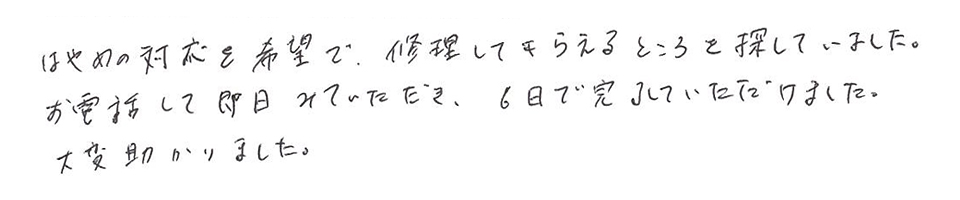 はやめの対応を希望で、修理してもらえるところを探していました。
お電話して即日みていただき、6日で完了していただけました。
大変助かりました。